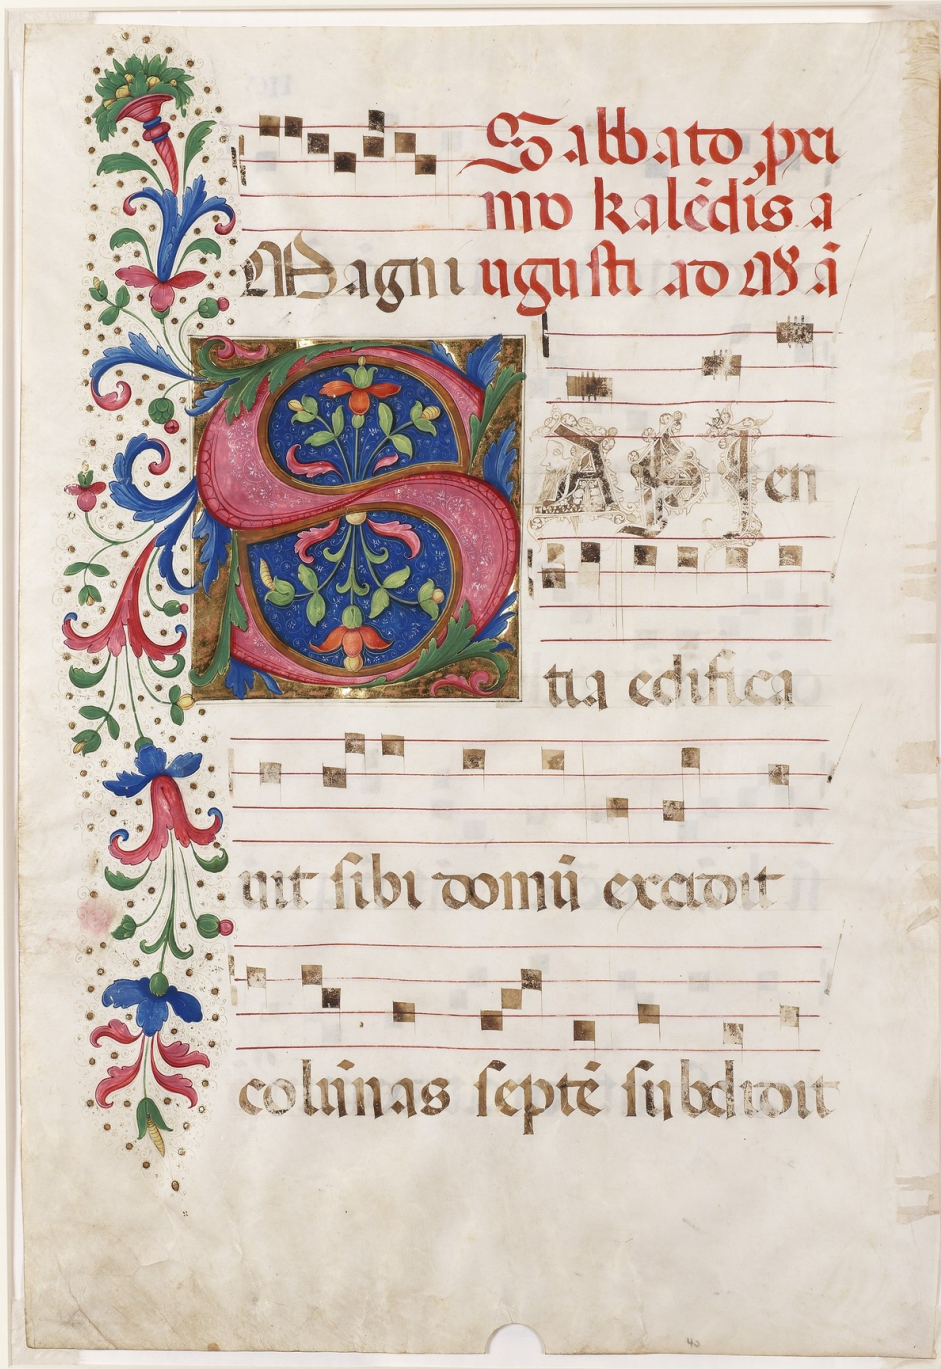 Sabbato pri
mo kalēdis a
Magni ugusti ad M ā
SAPIen
tia edifica
uit sibi domū excidit
colūnas septē subdidit
40